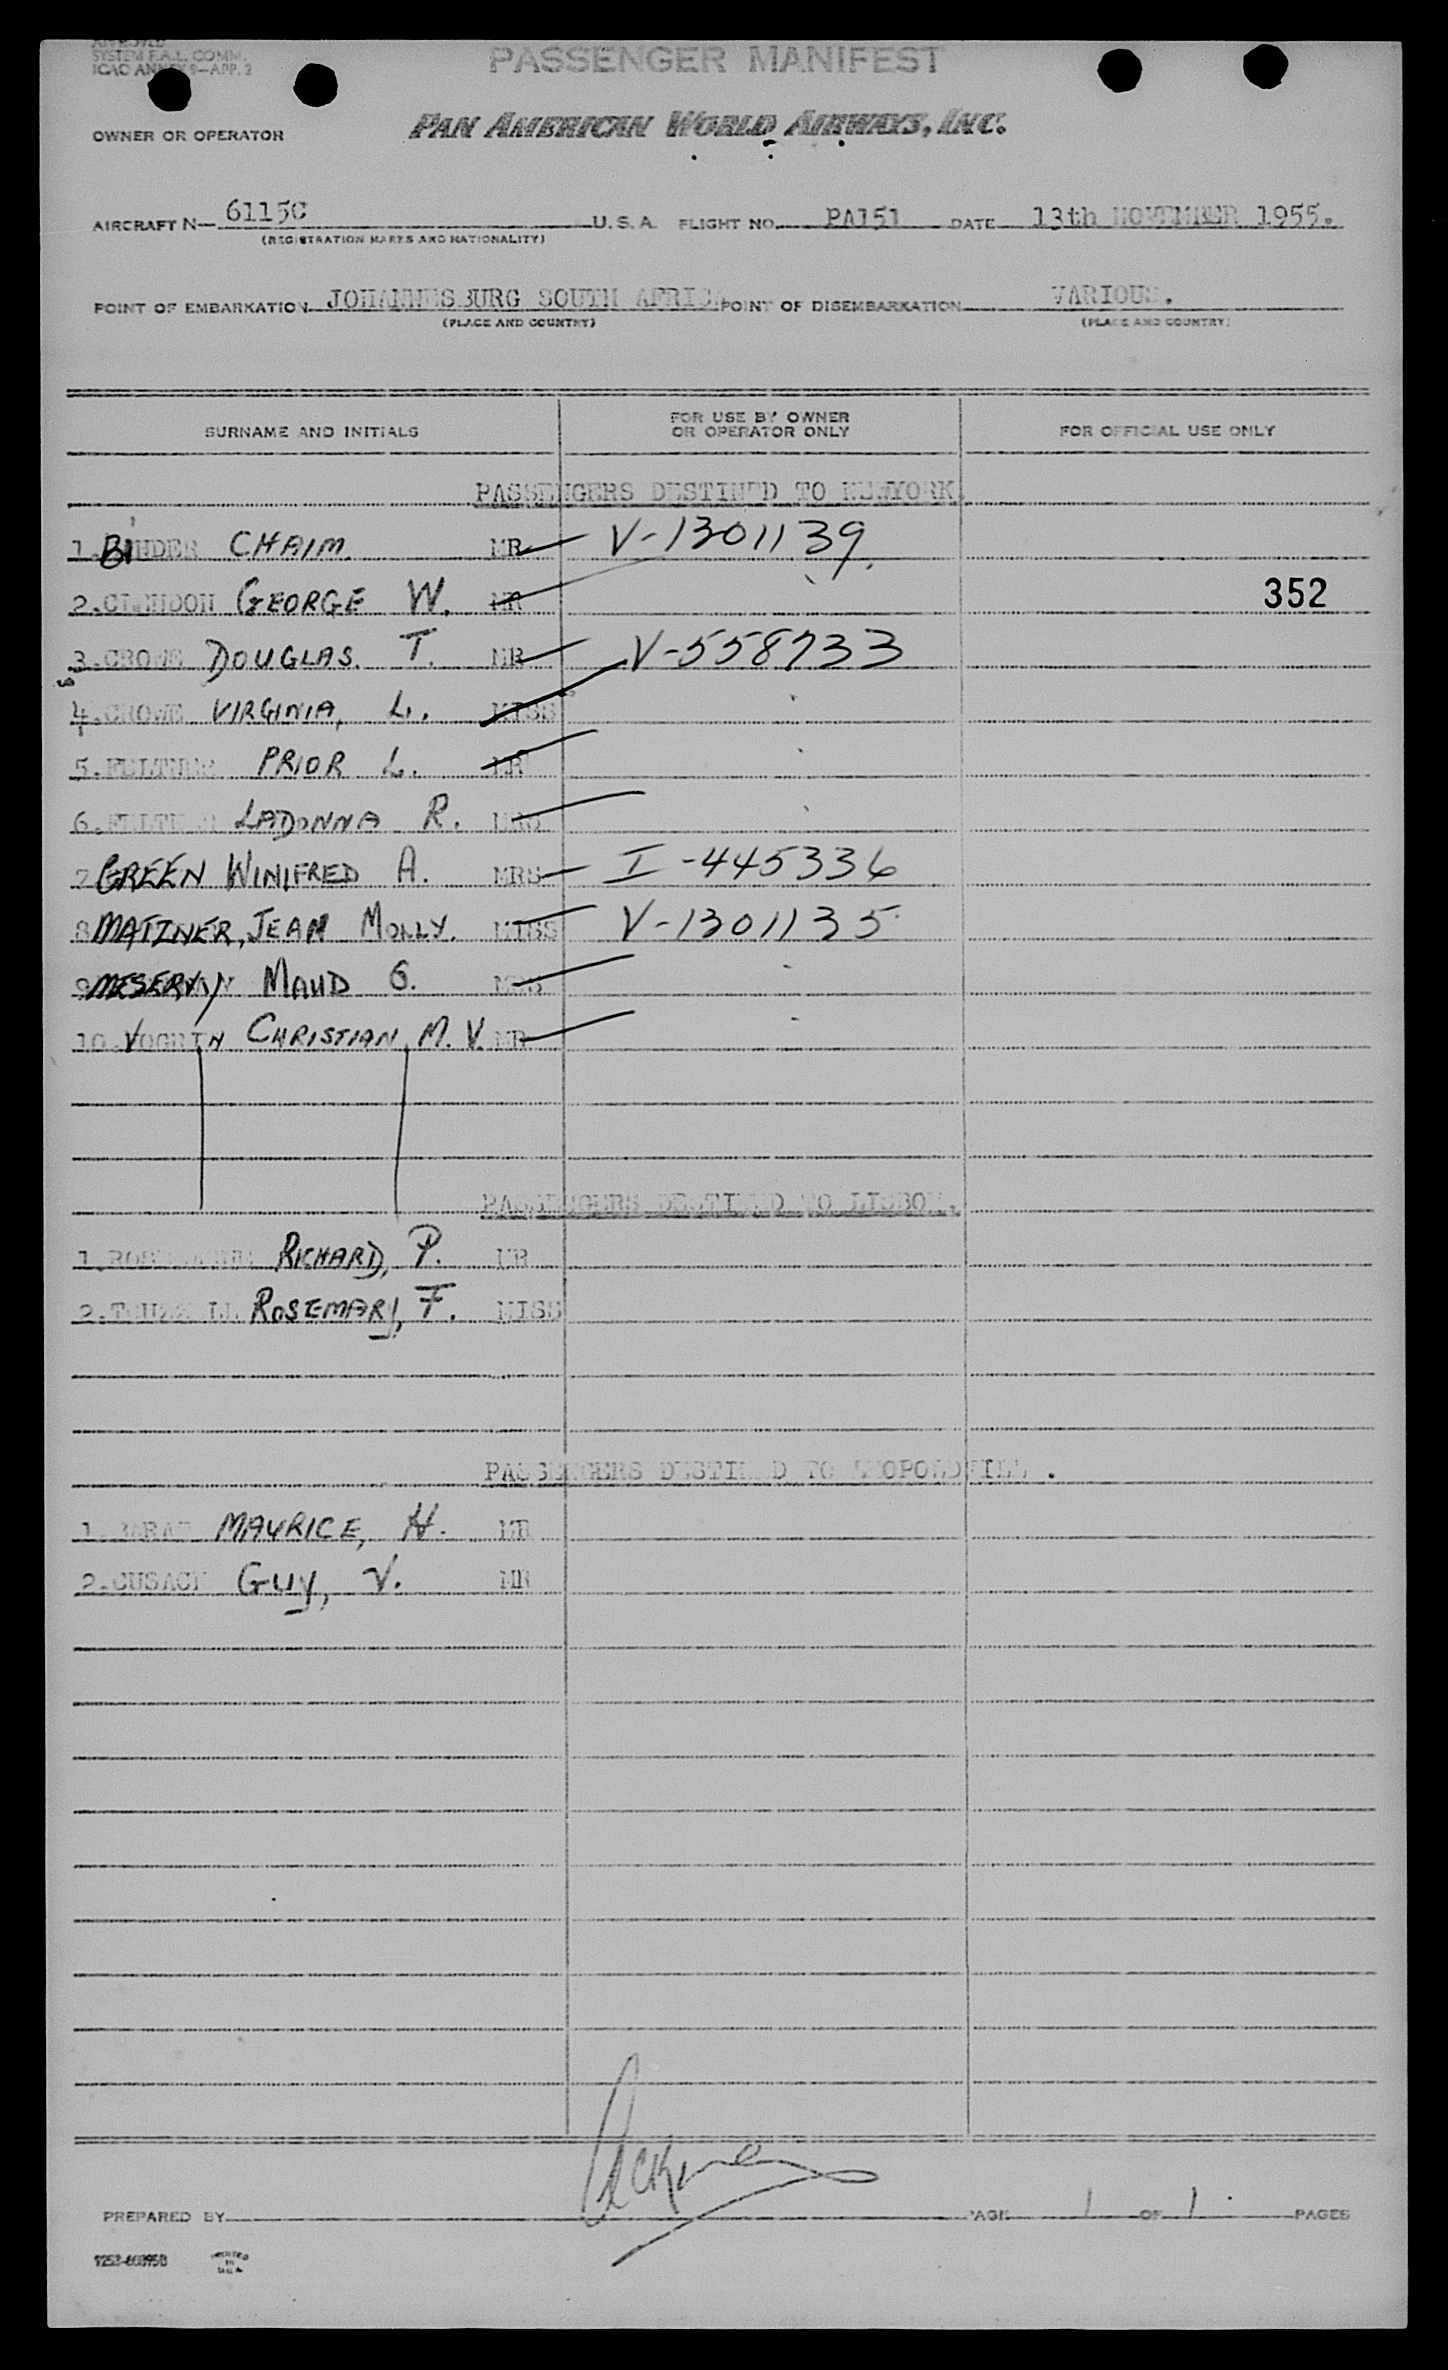 APPROVED
SYSTEM F.A.L. COMM.
ICAO ANNEX 9—APP. 2
PASSENGER MANIFEST
OWNER OR OPERATOR PAN AMERICAN WORLD AIRWAYS, INC.
AIRCRAFT N— 6115C U. S. A. FLIGHT NO. PA151 DATE 13th NOVEMBER 1955.
(REGISTRATION MARKS AND NATIONALITY)
POINT OF EMBARKATION JOHANNESBURG SOUTH AFRICA POINT OF DISEMBARKATION VARIOUS.
(PLACE AND COUNTRY) (PLACE AND COUNTRY)
SURNAME AND INITIALS FOR USE BY OWNER OR OPERATOR ONLY FOR OFFICIAL USE ONLY
PASSENGERS DESTINED TO NEWYORK.
1. BINDER CHAIM. MR V-1301139
2. GEORGE W. MR 352
3. CROWE DOUGLAS. T. MR V-558733
4. CROWE VIRGINIA, L. MISS
5. PRIOR L. MR
6. LADONNA R. MRS
7 GREEN WINIFRED A. MRS I-445336
8 MATZNER, JEAN MOLLY. MISS V-1301135
9 MESERVY MAUD G. MRS
10. VOGRIN CHRISTIAN, M. V. MR
PASSENGERS DESTINED TO LISBON.
1. RICHARD, P. MR
2. ROSEMARY, F. MISS
PASSENGERS DESTINED TO LEOPOLDVILLE.
1. MAURICE, H. MR
2. CUSACK GUY, V. MR
PREPARED BY PAGE 1 OF 1 PAGES
PRINTED IN U.S.A.